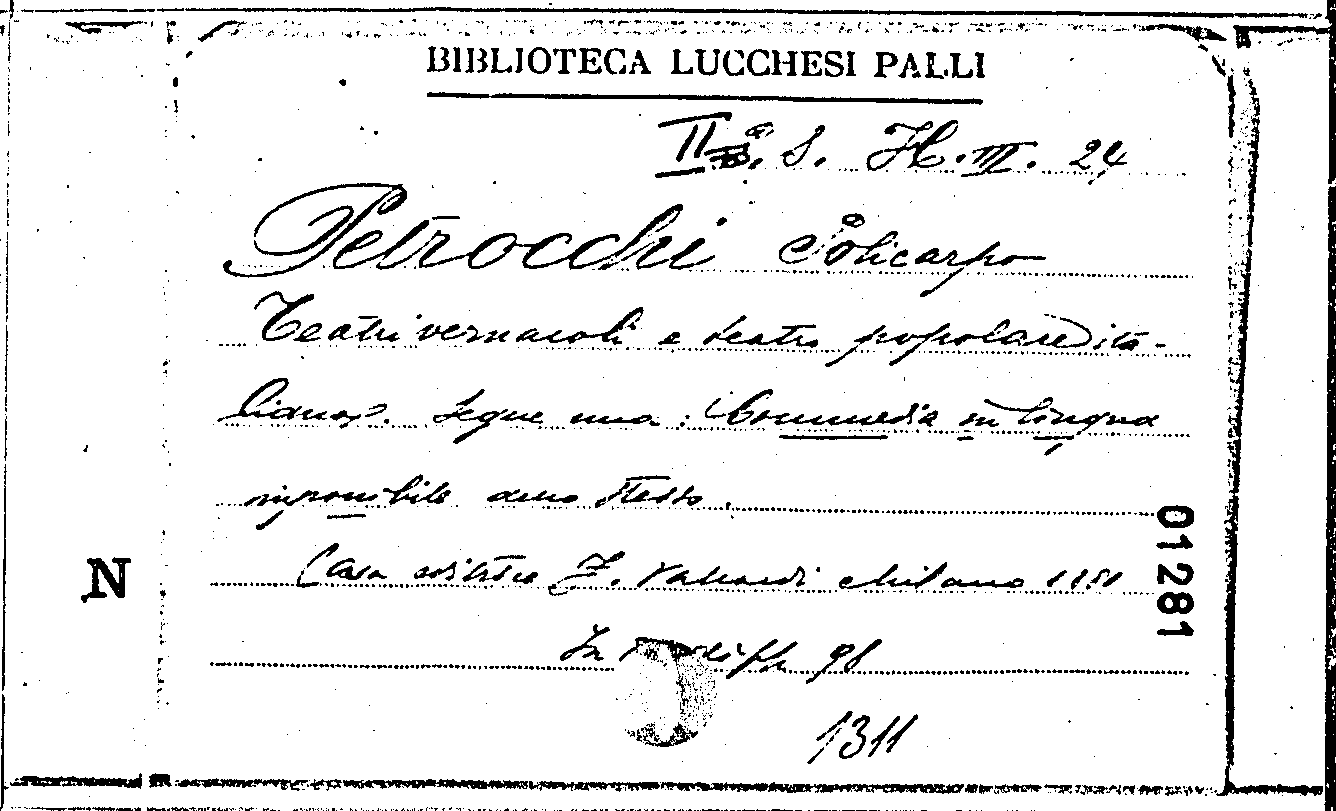 BIBLIOTECA LUCCHESI PALLI
II S. H. III. 24
Petrocchi Policarpo
Teatri vernacoli e teatro popolare ita-
liano. Segue una: Commedia in lingua
impossibile dello stesso.
Casa editrice F. Vallardi Milano
In 98
1311
N
01281